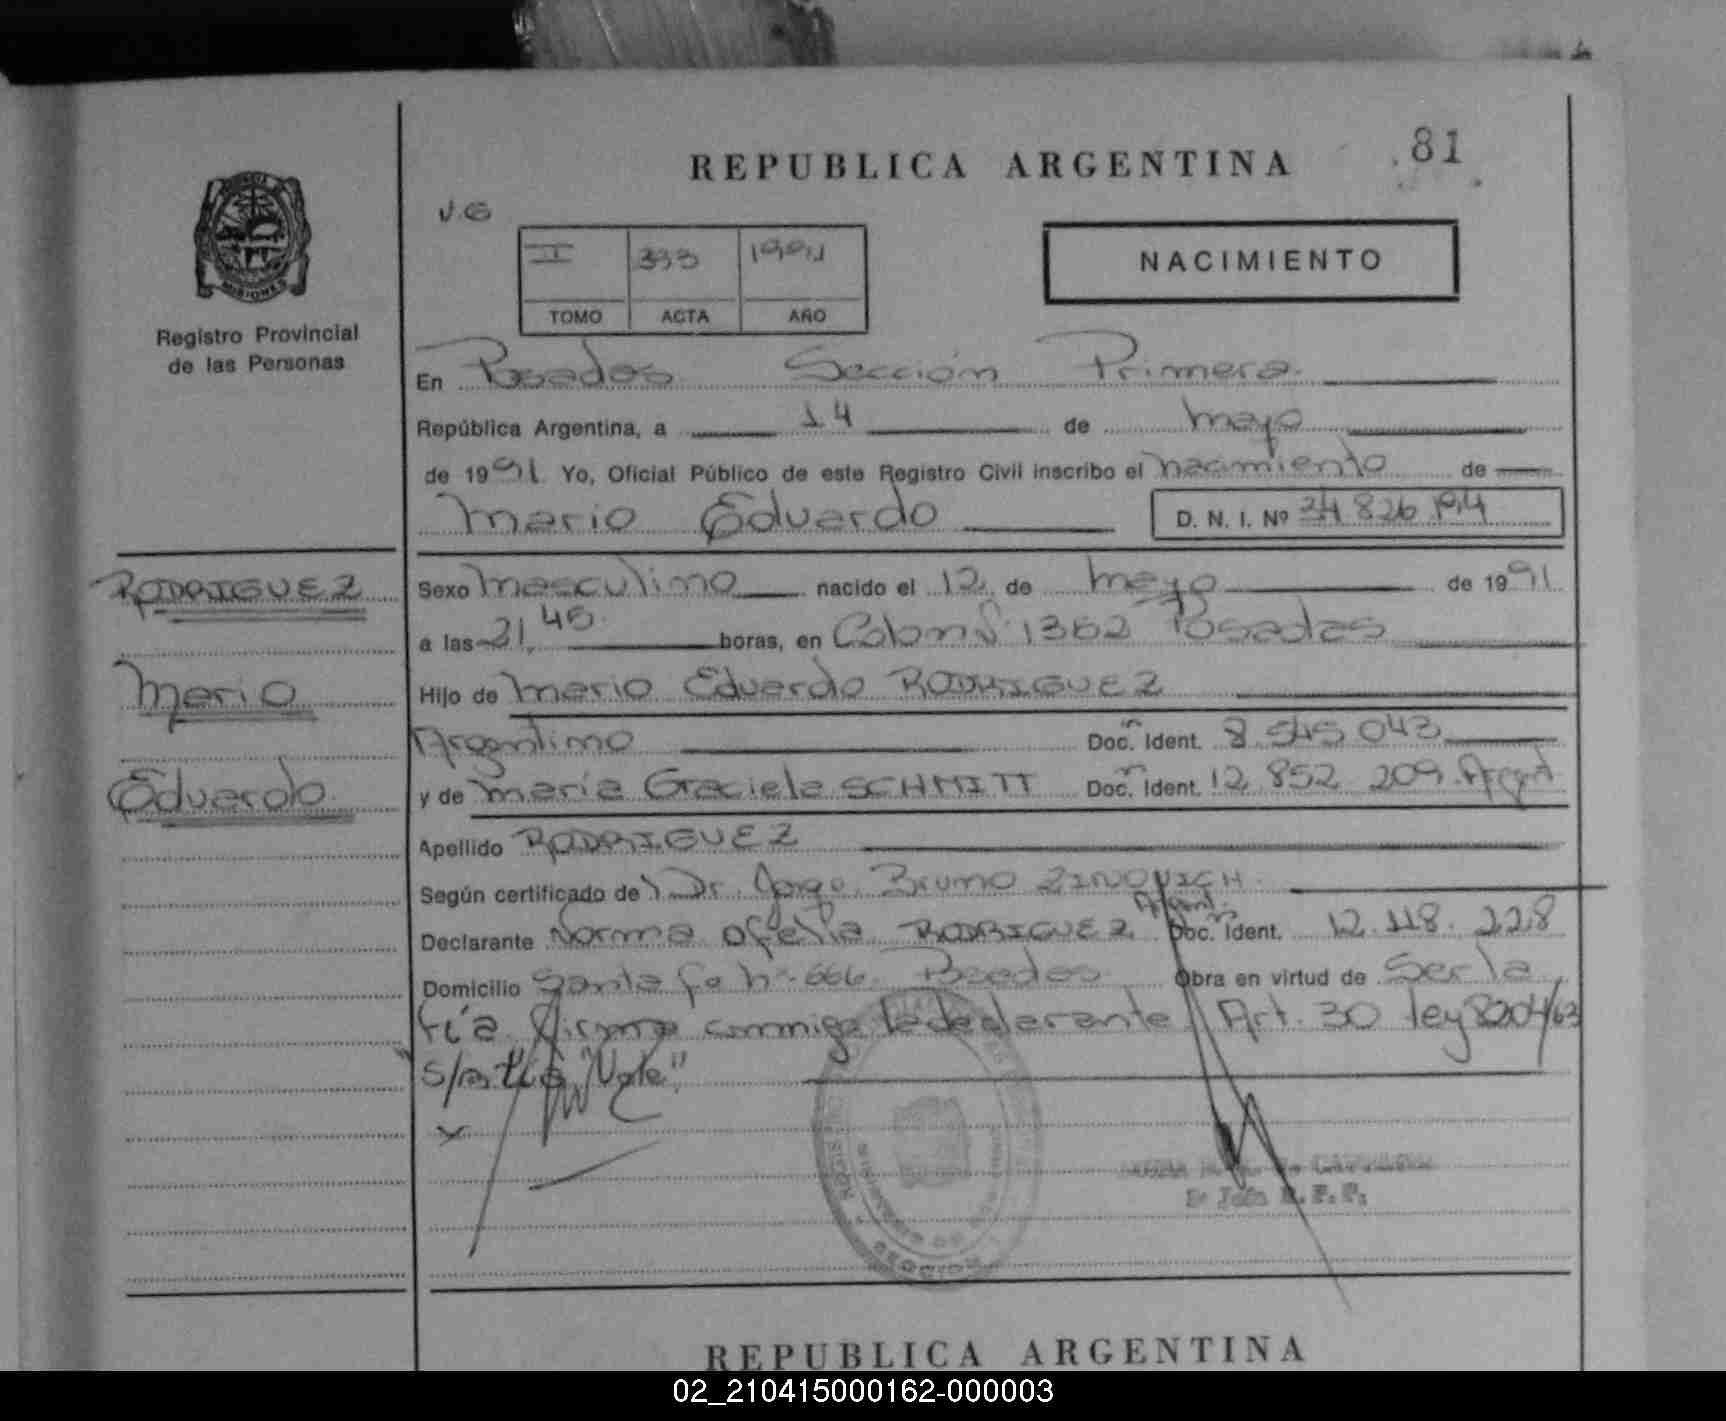 REPUBLICA ARGENTINA
81
V.G
I 333 1991
TOMO ACTA AÑO
NACIMIENTO
MISIONES
Registro Provincial
de las Personas
En Posadas Sección Primera
República Argentina, a 14 de mayo
de 1991 Yo, Oficial Público de este Registro Civil inscribo el nacimiento de
Mario Eduardo D. N. I. Nº 34 826 194
RODRIGUEZ
Mario
Eduardo
Sexo masculino nacido el 12 de mayo de 1991
a las 21,45 horas, en Colon Nº 1352 Posadas
Hijo de Mario Eduardo RODRIGUEZ
Argentino Doc. Ident. 8.545 043
y de María Graciela SCHMITT Doc. Ident. 12 852 209 Argent
Apellido RODRIGUEZ
Según certificado de Dr. Jorge Bruno ZINOVICH
Argent.
Declarante Norma Ofelia RODRIGUEZ Doc. Ident. 12.118.228
Domicilio Santa fe nº 666 Posadas Obra en virtud de Ser la
tía firma conmigo la declarante Art. 30 ley 8204/63
tía "Vale"
REPUBLICA ARGENTINA
02_210415000162-000003